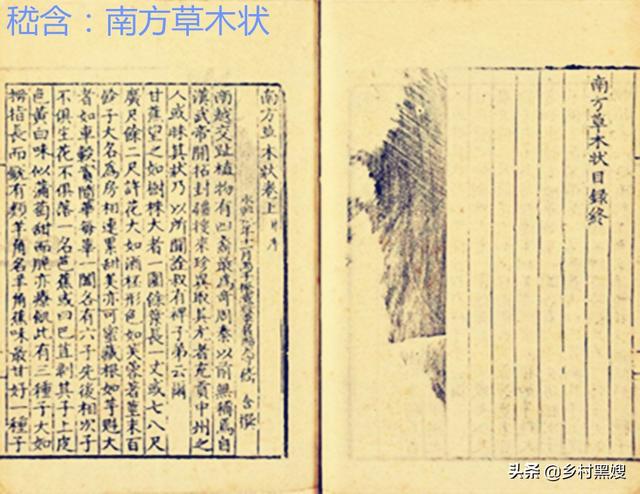 嵇含：南方草木状
南方草木状目録終
南方草木狀卷上 并序
永興元年十一月丙子振威將軍襄陽太守嵇含撰
南越交趾植物有四裔最爲奇周秦以前無稱焉自
漢武帝開拓封疆搜來珍異取其尤者充貢中州之
人或昧其狀乃以所聞詮叙有裨子弟云爾
甘蕉望之如樹株大者一圍餘葉長一丈或七八尺
廣尺餘二尺許花大如酒杯形色如芙蓉著莖末百
餘子大名爲房相連累甜美亦可蜜藏根如芋魁大
者如車轂實隨華每華一闔各有六子先後相次子
不俱生花不俱落一名芭蕉或曰巴苴剥其子上皮
色黃白味似蒲萄甜而脆亦療飢此有三種子大如
拇指長而銳有類羊角名羊角蕉味最甘好一種子
头条 @乡村黑嫂